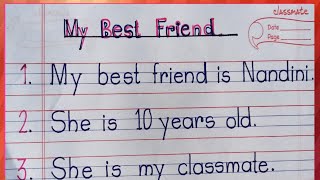 My Best Friend
classmate
Date
Page
1. My best friend is Nandini.
2. She is 10 years old.
3. She is my classmate.